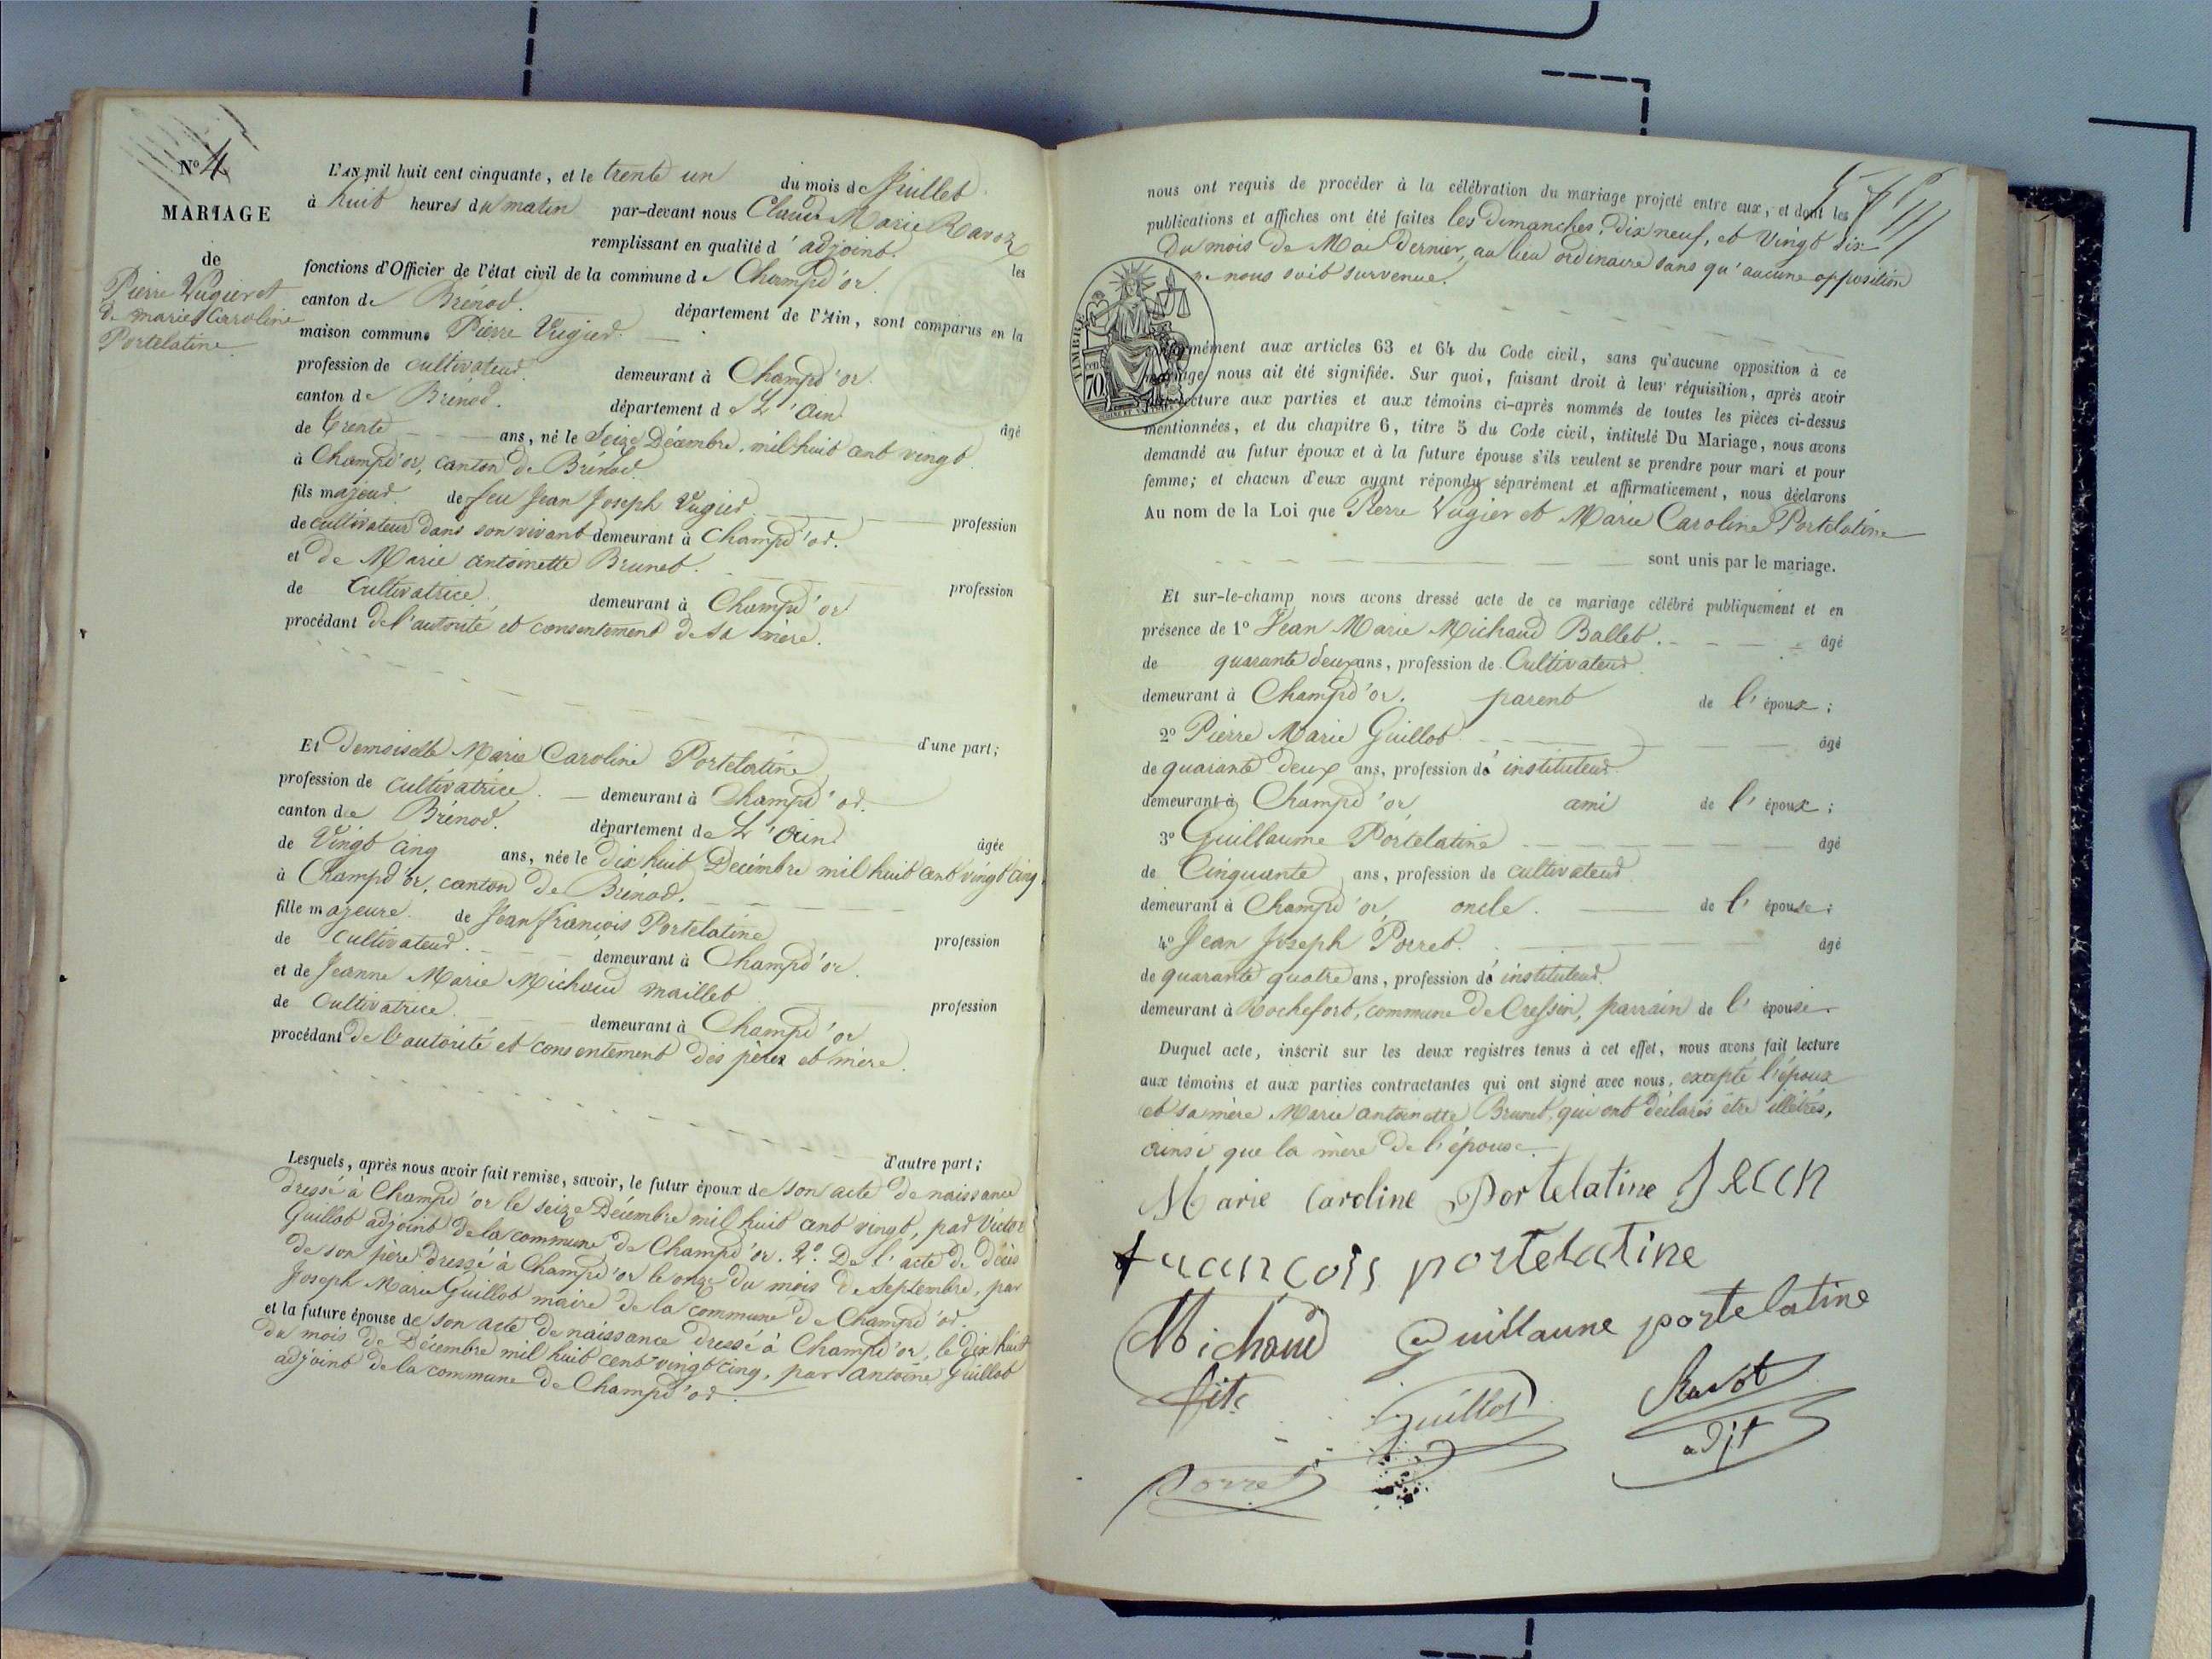 N° 4
MARIAGE
de
Pierre Vugier et
de marie Caroline
Portelatine
L'AN mil huit cent cinquante, et le trente un du mois de Juillet
à huit heures du matin par-devant nous Claude Marie Ravoz
remplissant en qualité d'adjoint. les
fonctions d'Officier de l'état civil de la commune de Champd'or.
canton de Brénod. département de l'Ain, sont comparus en la
maison commune Pierre Vugier.
profession de cultivateur. demeurant à Champd'or.
canton de Brénod. département de L'ain âgé
de trente ans, né le Seize Décembre, mil huit cent vingt
à Champd'or, canton de Brénod
fils majeur de feu Jean Joseph Vugier profession
de cultivateur dans son vivant demeurant à Champd'or.
et de Marie antoinette Brunet. profession
de Cultivatrice. demeurant à Champd'or
procédant de l'autorité et consentement de sa mère.
d'une part;
Et Demoiselle Marie Caroline Portelatine
profession de cultivatrice. demeurant à Champd'or.
canton de Brénod. département de L'ain âgée
de Vingt cinq ans, née le Dix huit Décembre mil huit cent vingt cinq,
à Champd'or, canton de Brénod.
fille majeure. de Jean françois Portelatine profession
de Cultivateur. demeurant à Champd'or.
et de Jeanne Marie Michaud maillet profession
de Cultivatrice. demeurant à Champd'or
procédant de l'autorité et consentement des pères et mère.
d'autre part;
Lesquels, après nous avoir fait remise, savoir, le futur époux de son acte de naissance
dressé à Champd'or le seize Décembre mil huit cent vingt, par Victor
Guillot adjoint de la commune de Champd'or. 2° De l'acte de décès
de son père dressé à Champd'or le onze du mois de Septembre, par
Joseph Marie Guillot maire de la commune de Champd'or.
et la future épouse de son acte de naissance dressé à Champd'or, le dix huit
du mois de Décembre mil huit cent vingt cinq, par antoine Guillot
adjoint de la commune de Champd'or.
nous ont requis de procéder à la célébration du mariage projeté entre eux, et dont les
publications et affiches ont été faites les Dimanches, dix neuf, et Vingt six
Du mois de Mai Dernier, au lieu ordinaire sans qu'aucune opposition
ne nous soit survenue.
TIMBRE
70
mément aux articles 63 et 64 du Code civil, sans qu'aucune opposition à ce
mariage nous ait été signifiée. Sur quoi, faisant droit à leur réquisition, après avoir
lecture aux parties et aux témoins ci-après nommés de toutes les pièces ci-dessus
mentionnées, et du chapitre 6, titre 5 du Code civil, intitulé Du Mariage, nous avons
demandé au futur époux et à la future épouse s'ils veulent se prendre pour mari et pour
femme; et chacun d'eux ayant répondu séparément et affirmaticement, nous déclarons
Au nom de la Loi que Pierre Vugier et Marie Caroline Portelatine
sont unis par le mariage.
Et sur-le-champ nous avons dressé acte de ce mariage célébré publiquement et en
présence de 1° Jean Marie Michaud Ballet. âgé
de quarante deux ans, profession de Cultivateur
demeurant à Champd'or. parent de l'époux;
2° Pierre Marie Guillot âgé
de quarante deux ans, profession d'instituteur
demeurant à Champd'or ami de l'époux;
3° Guillaume Portelatine âgé
de Cinquante ans, profession de cultivateur
demeurant à Champd'or, oncle. de l'épouse;
4° Jean Joseph Porret. âgé
de quarante quatre ans, profession d'instituteur.
demeurant à Rochefort, commune de Cressin, parrain de l'épouse.
Duquel acte, inscrit sur les deux registres tenus à cet effet, nous avons fait lecture
aux témoins et aux parties contractantes qui ont signé avec nous, excepté l'époux
et sa mère Marie antoinette Brunet, qui ont déclarés être illétrés,
ainsi que la mère de l'épouse.
Marie Caroline Portelatine Jean
francois portelatine
Michaud Guillaume portelatine
Guillot Ravot
adjt
Porret